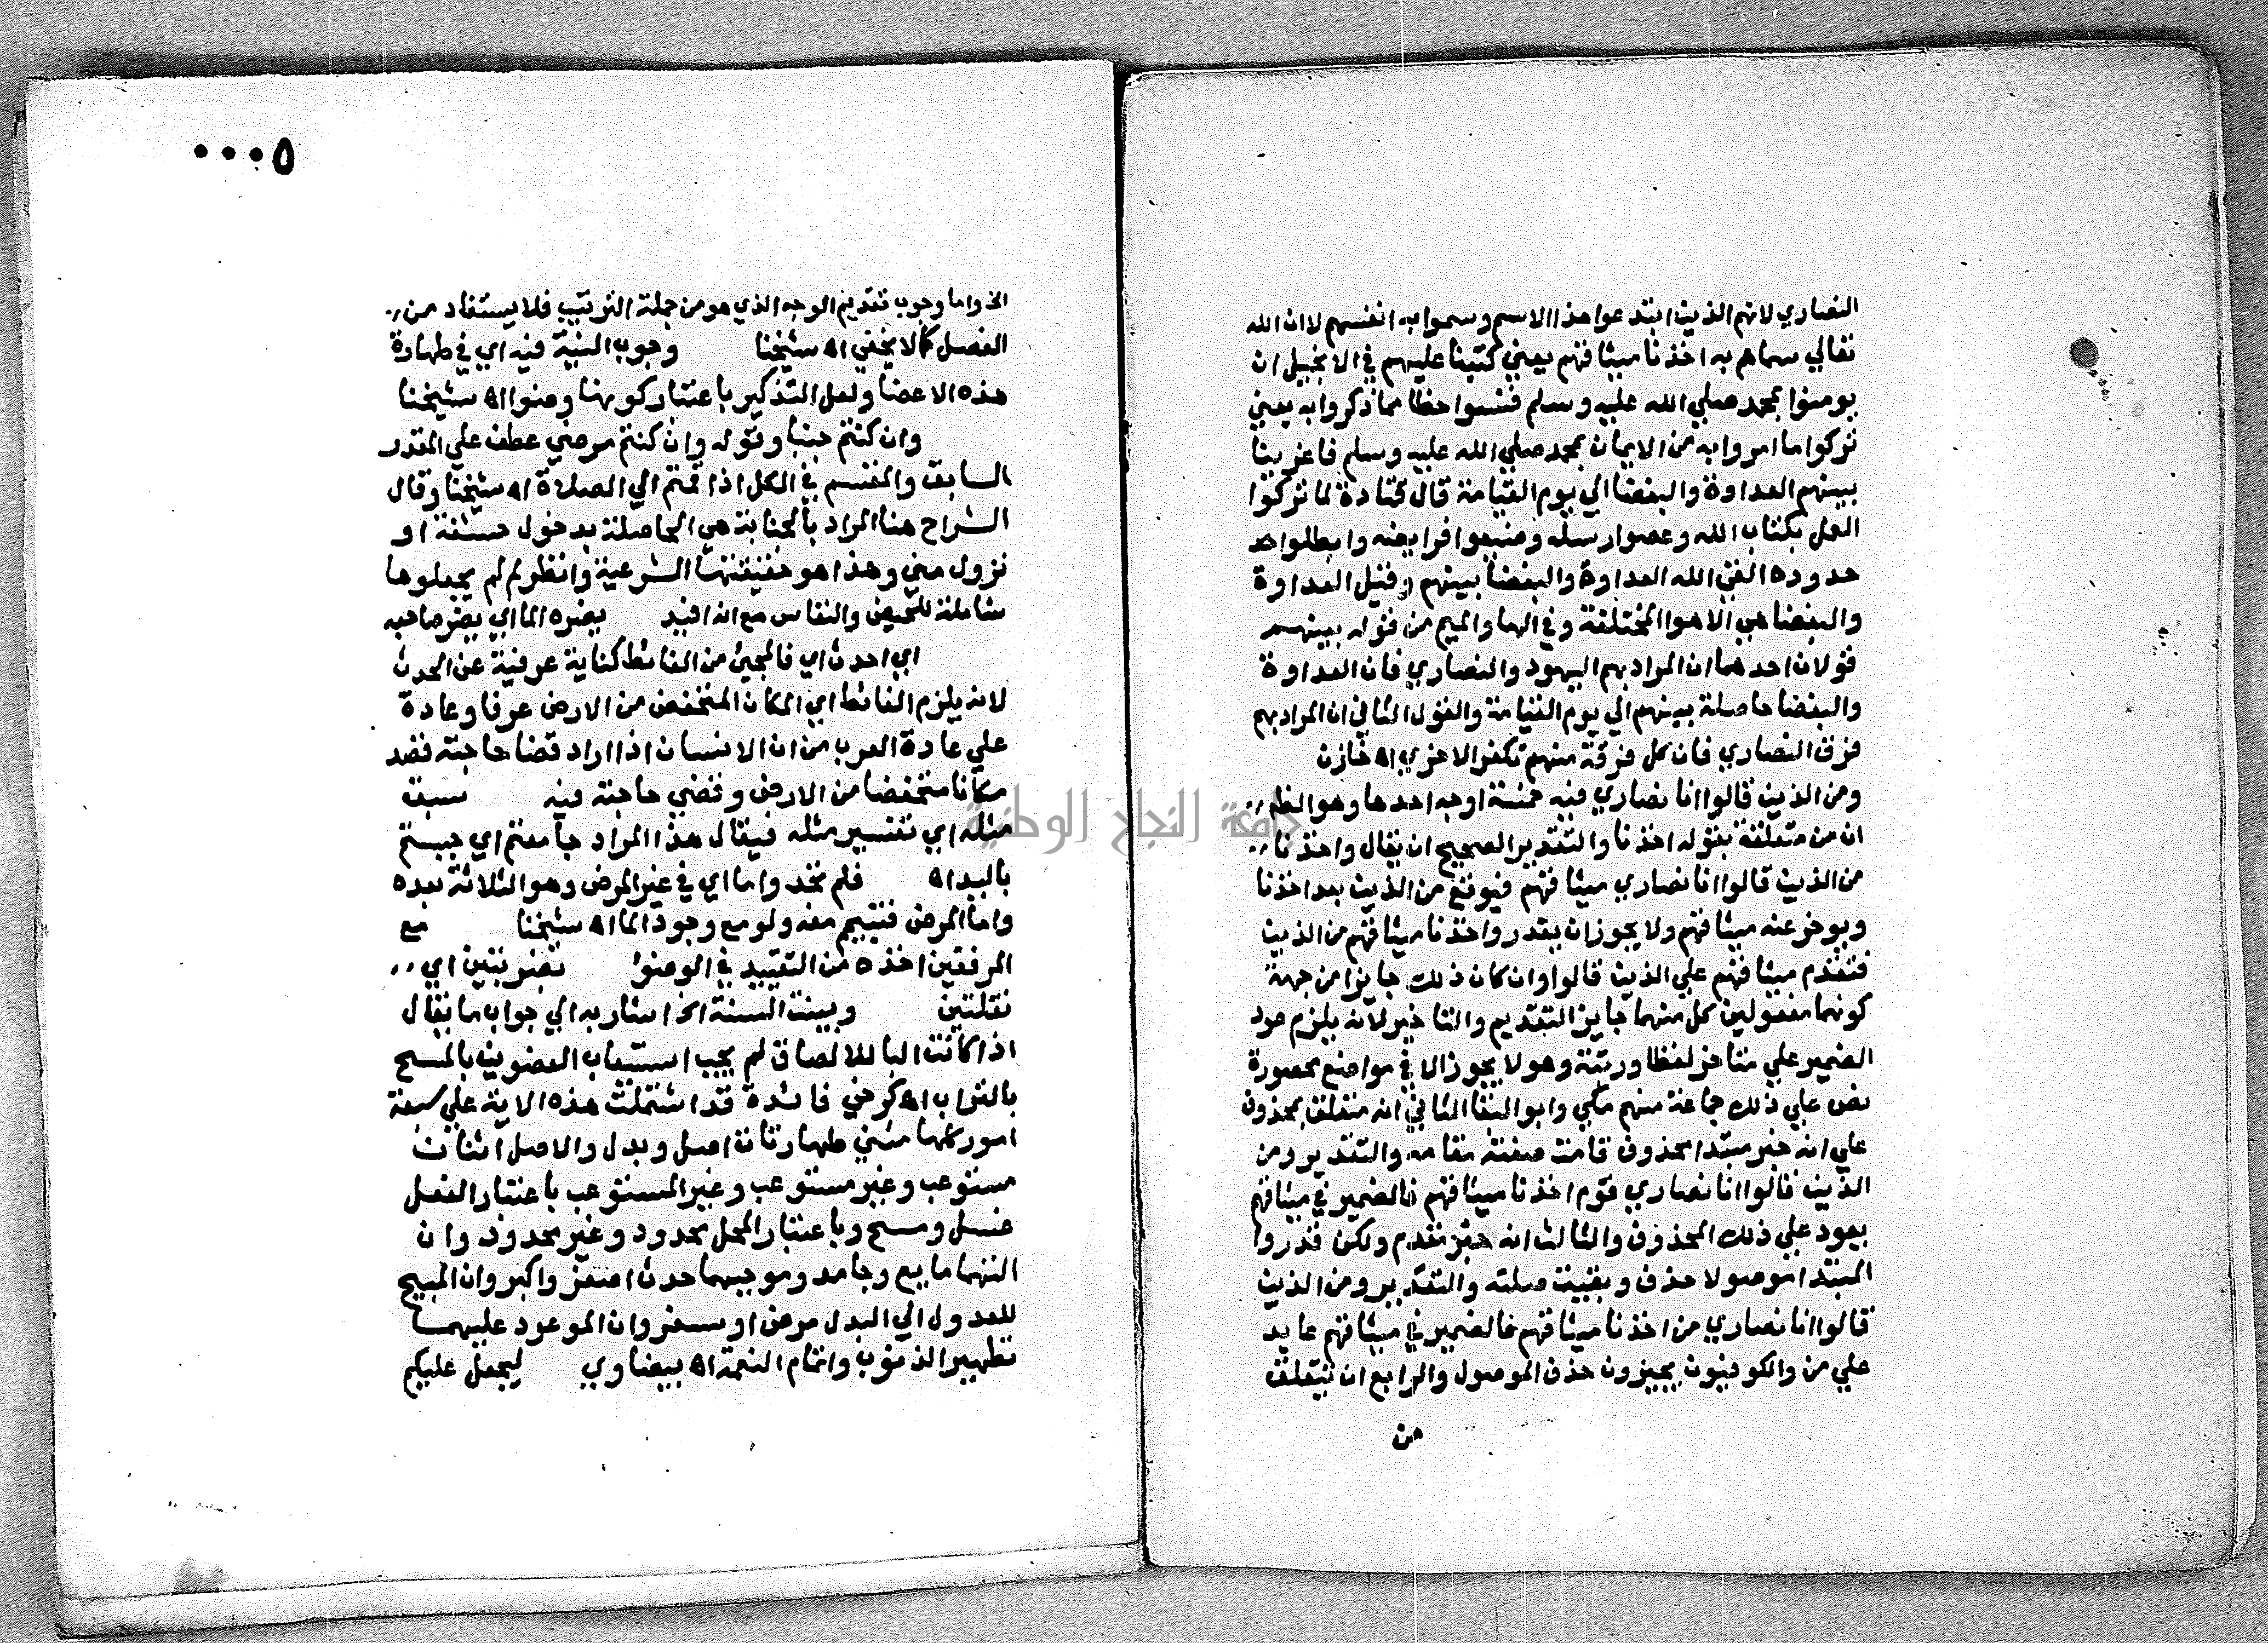 النصاري لانهم الذين ابتدعوا هذا الاسم وسموا به انفسهم لا ان الله
تعالي سماهم به اخذنا ميثاقهم يعني كتبنا عليهم في الانجيل ان
يومنوا بمحمد صلي الله عليه وسلم فنسوا حظا مما ذكروا به يعني
تركوا ما امروا به من الايمان بمحمد صلي الله عليه وسلم فاغرينا
بينهم العداوة والبغضا الي يوم القيامة قال قتادة لما تركوا
العمل بكتاب الله وعصوا رسله وضيعوا فرايضه وابطلوا حد
حدوده القي الله العداوة والبغضا بينهم وقيل العداوة
والبغضا هي الاهوا المختلفة وفي الها والميم من قوله بينهم
قولان احدهما ان المراد بهم اليهود والنصاري فان العداوة
والبغضا حاصلة بينهم الي يوم القيامة والقول الثاني ان المراد بهم
فرق النصاري فان كل فرقة منهم تكفر الاخري اه خازن
ومن الذين قالوا انا نصاري فيه خمسة اوجه احدها وهو الظاهر
ان من متعلقة بقوله اخذنا والتقدير الصحيح ان يقال واخذنا
من الذين قالوا انا نصاري ميثاقهم فيوقع من الذين بعد اخذنا
ويوخر عنه ميثاقهم ولا يجوز ان يقدر واخذنا ميثاقهم من الذين
فتقدم ميثاقهم علي الذين قالوا وان كان ذلك جايزا من جهة
كونهما مفعولين كل منهما جايز التقديم والتاخير لانه يلزم عود
الضمير علي متاخر لفظا ورتبة وهو لا يجوز الا في مواضع محصورة
نص علي ذلك جماعة منهم مكي وابو البقا الثاني انه متعلق بمحذوف
علي انه خبر مبتدا محذوف قامت صفته مقامه والتقدير ومن
الذين قالوا انا نصاري قوم اخذنا ميثاقهم فالضمير في ميثاقهم
يعود علي ذلك المحذوف والثالث انه خبر مقدم ولكن قدروا
المبتدا موصولا حذف وبقيت صلته والتقدير ومن الذين
قالوا انا نصاري من اخذنا ميثاقهم فالضمير في ميثاقهم عايد
علي من والكوفيون يجيزون حذف الموصول والرابع ان تتعلق
من
٥٠٠٠
الخ واما وجوب تقديم الوجه الذي هو من جملة الترتيب فلا يستفاد من
الفصل كما لا يخفي اه شيخنا وجوب النية فيه اي في طهارة
هذه الاعضا ولعل التذكير باعتبار كونها وضوا اه شيخنا
وان كنتم جنبا وقوله وان كنتم مرضي عطف علي المقدر
السابق والمقسم في الكل اذا قمتم الي الصلاة اه شيخنا وقال
الشراح هنا المراد بالجنابة هي الحاصلة بدخول حشفة او
نزول مني وهذا هو حقيقتها الشرعية وانظر لم لم يجعلوها
شاملة للحيض والنفاس مع انه افيد يضره الما اي يضر صاحبه
اي احدث اي فالمجئ من الغائط كناية عرفية عن الحدث
لانه يلزم الغائط اي المكان المنخفض من الارض عرفا وعادة
علي عادة العرب من ان الانسان اذا اراد قضا حاجته قصد
مكانا منخفضا من الارض وقضي حاجته فيه سبق
مثله اي تفسير مثله فيقال هذا المراد جامعتم اي جسستم
باليد اه فلم تجدوا ما اي في غير المرض وهو الثلاثة بعده
واما المرض فتيمم معه ولو مع وجود الما اه شيخنا مع
المرفقين اخذه من التقييد في الوضوء بضربتين اي
نقلتين وبينت السنة الخ اشار به الي جواب ما يقال
اذا كانت البا للالصاق لم يجب استيعاب العضوين بالمسح
بالتراب اه كرخي فائدة قد اشتملت هذه الاية علي سبعة
امور كلها مثني طهارتان اصل وبدل والاصل اثنان
مستوعب وغير مستوعب وغير المستوعب باعتبار الفعل
غسل ومسح وباعتبار المحل محدود وغير محدود وان
التهما مايع وجامد وموجبهما حدث اصغر واكبر وان المبيح
للعدول الي البدل مرض او سفر وان الموعود عليهما
تطهير الذنوب واتمام النعمة اه بيضاوي ليجعل عليكم
جامعة النجاح الوطنية